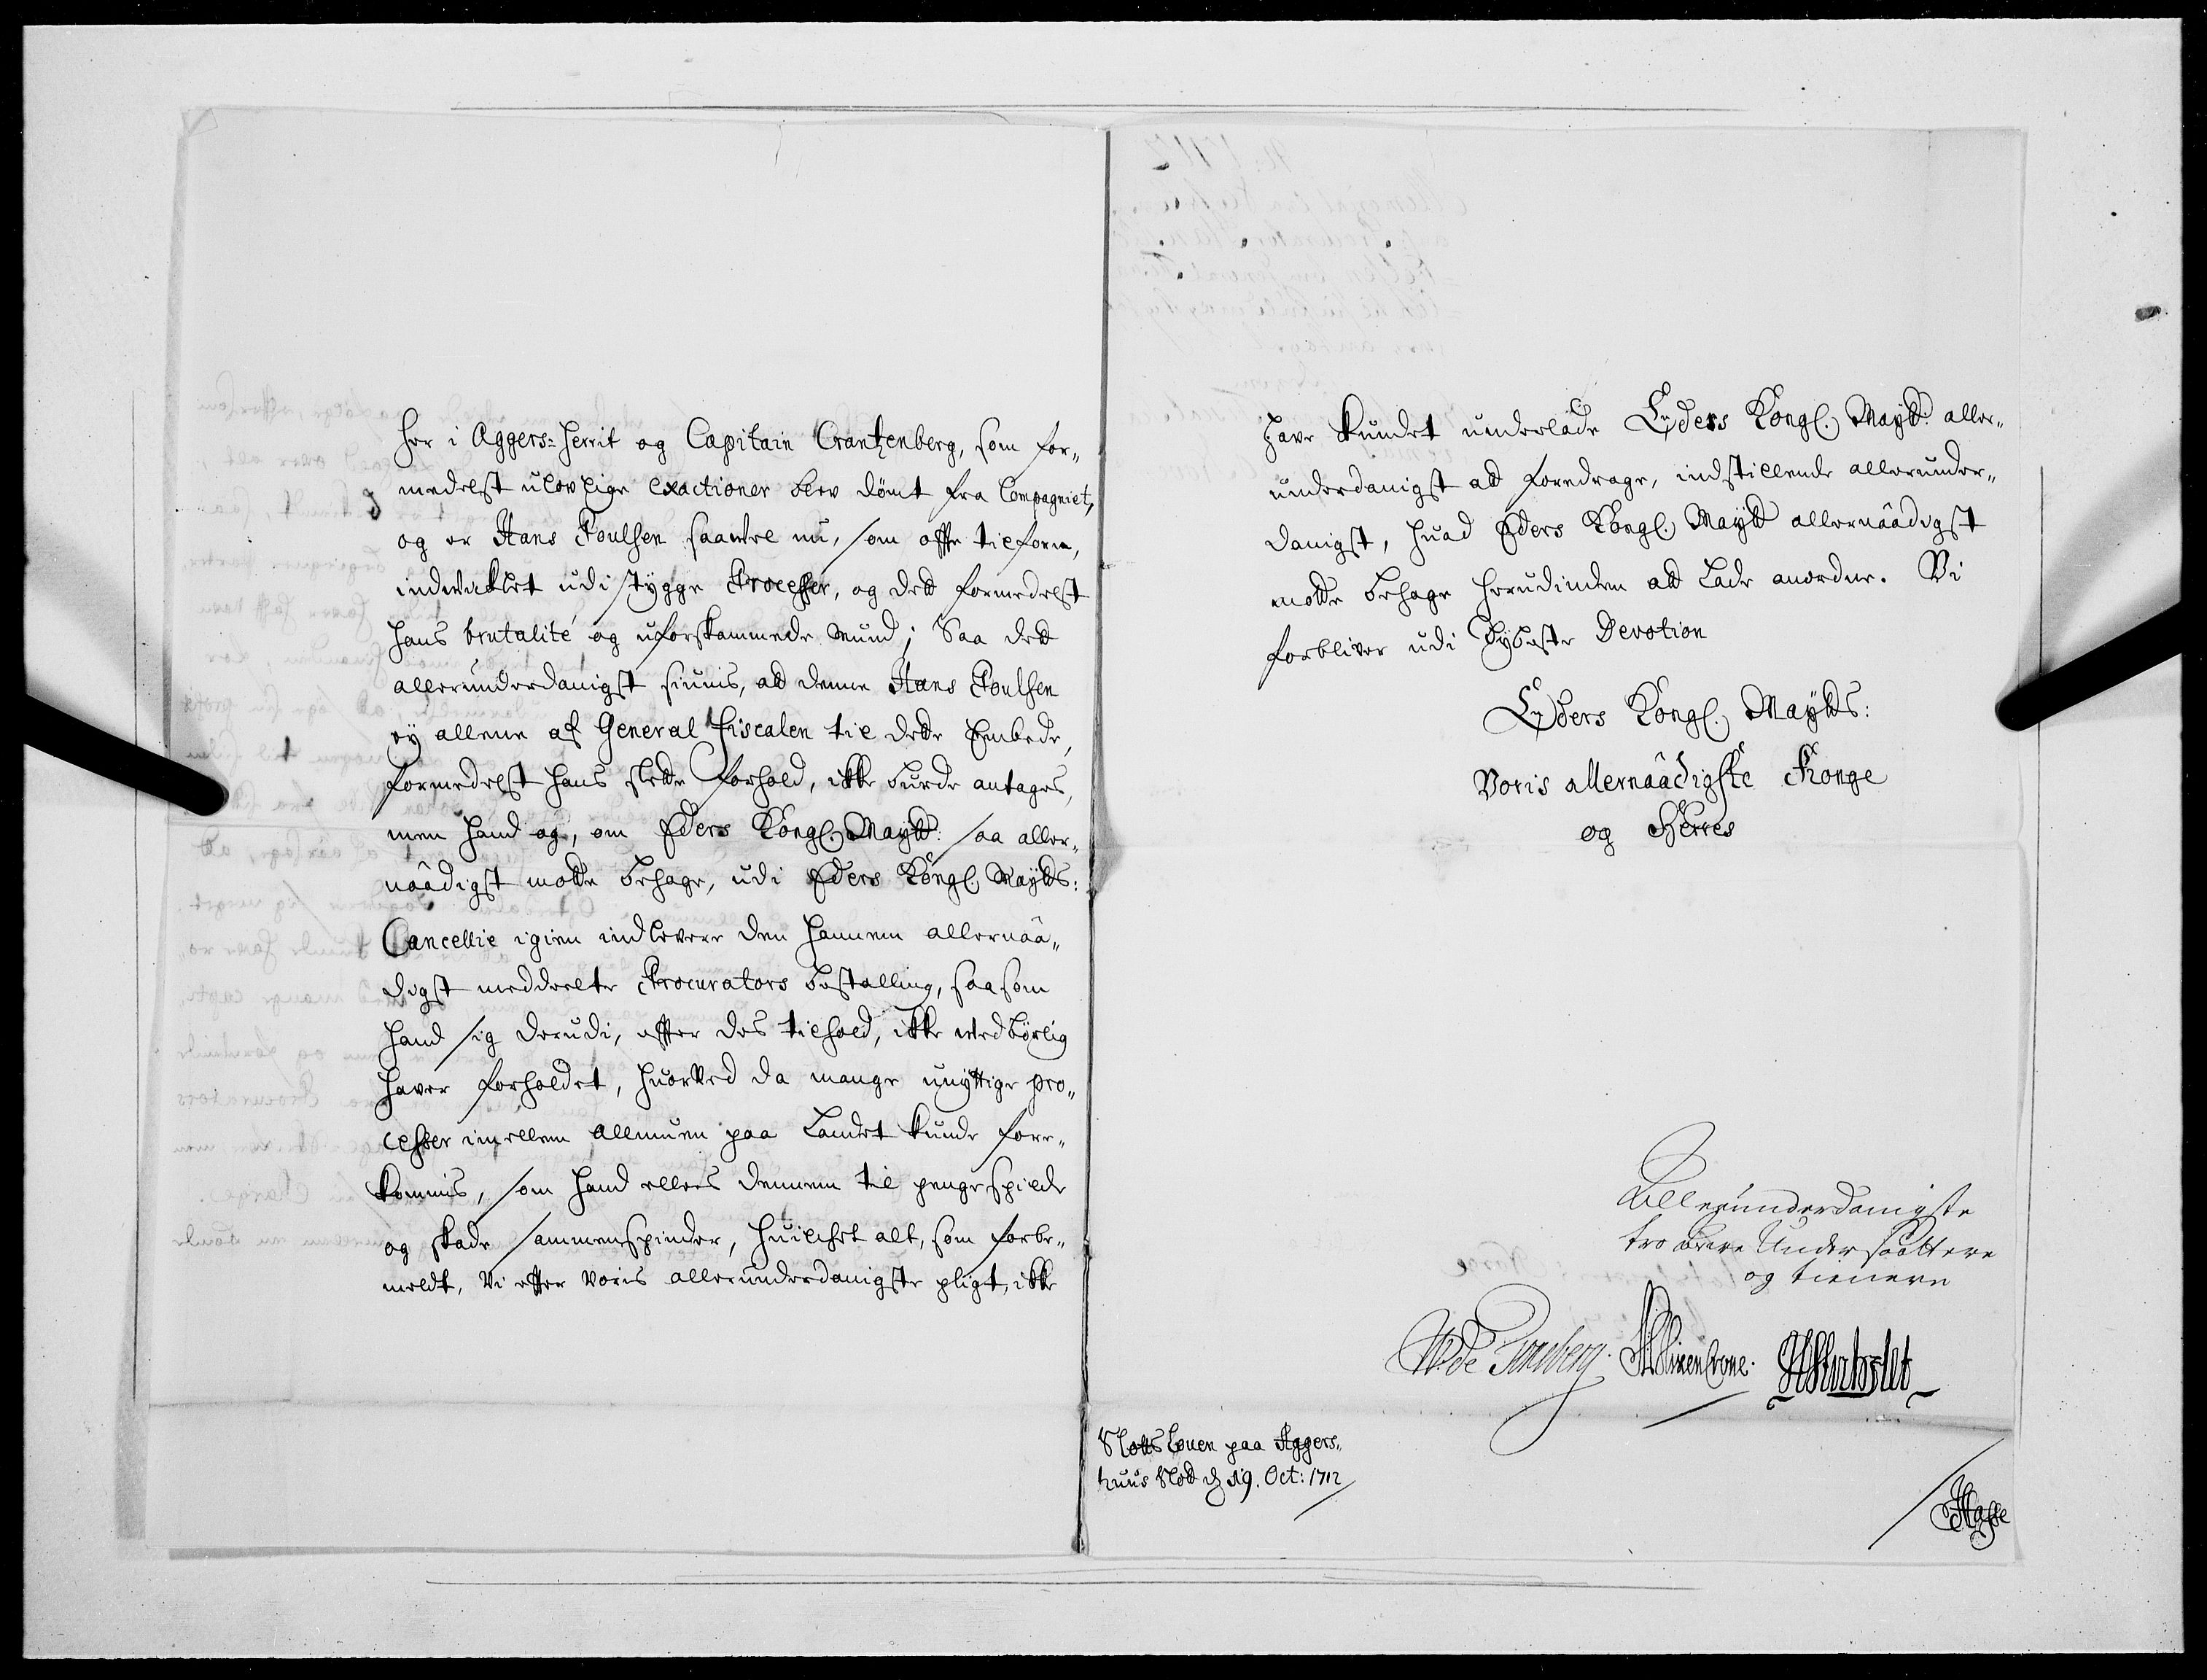 her i Aggers-Herrit og Capitain Crantzenberg, som for„
medelst ulovlige exactioner blev dömt fra Compagniet,
og er Hans Poulsen saavel nu, som offte tilforn,
indviklet udi stygge Processer, og det formedelst
hans brutalité og uforskammede Mund; Saa det
allerunderdanigst siunis, at denne Hans Poulsen
ey allene af General Fiscalen til dette Embede,
formedelst hans slette forhold, ikke burde antages,
men hand og, om Eders Kongl. Maytt: saa aller„
naadigst motte behage, udi Eders Kongl. Maytts:
Cancellie igien indlevere den hannem allernaa„
digst meddeelte Procurators bestalling, saasom
hand sig derudi, efter des tilhold, ikke vedbörlig
haver forholdet, huorved da mange unyttige pro„
cesser imellem Allmuen paa Landet kunde fore„
kommis, som hand ellers dennem til pengespilde
og skade sammenspinder, huilchet alt, som forbe„
meldt, Vi efter voris allerunderdanigste pligt, ikke
have kundet underlade Eyders Kongl. Maytt: aller„
underdanigst at foredrage, indstillende allerunder„
danigst, huad Eders Kongl. Maytt allernaadigst
motte behage herudinden at lade anordne. Vi
forbliver udi dybeste Devotion
Eyders Kongl. Maytts:
Voris allernaadigste Konge
og Herres
Allerunderdanigste
troe Undersaattere
og tienere
W: de Tonsberg. Vlixencrone.
Slotsloven paa Aggers„
huus Slot d 19. Oct: 1712
Hasse